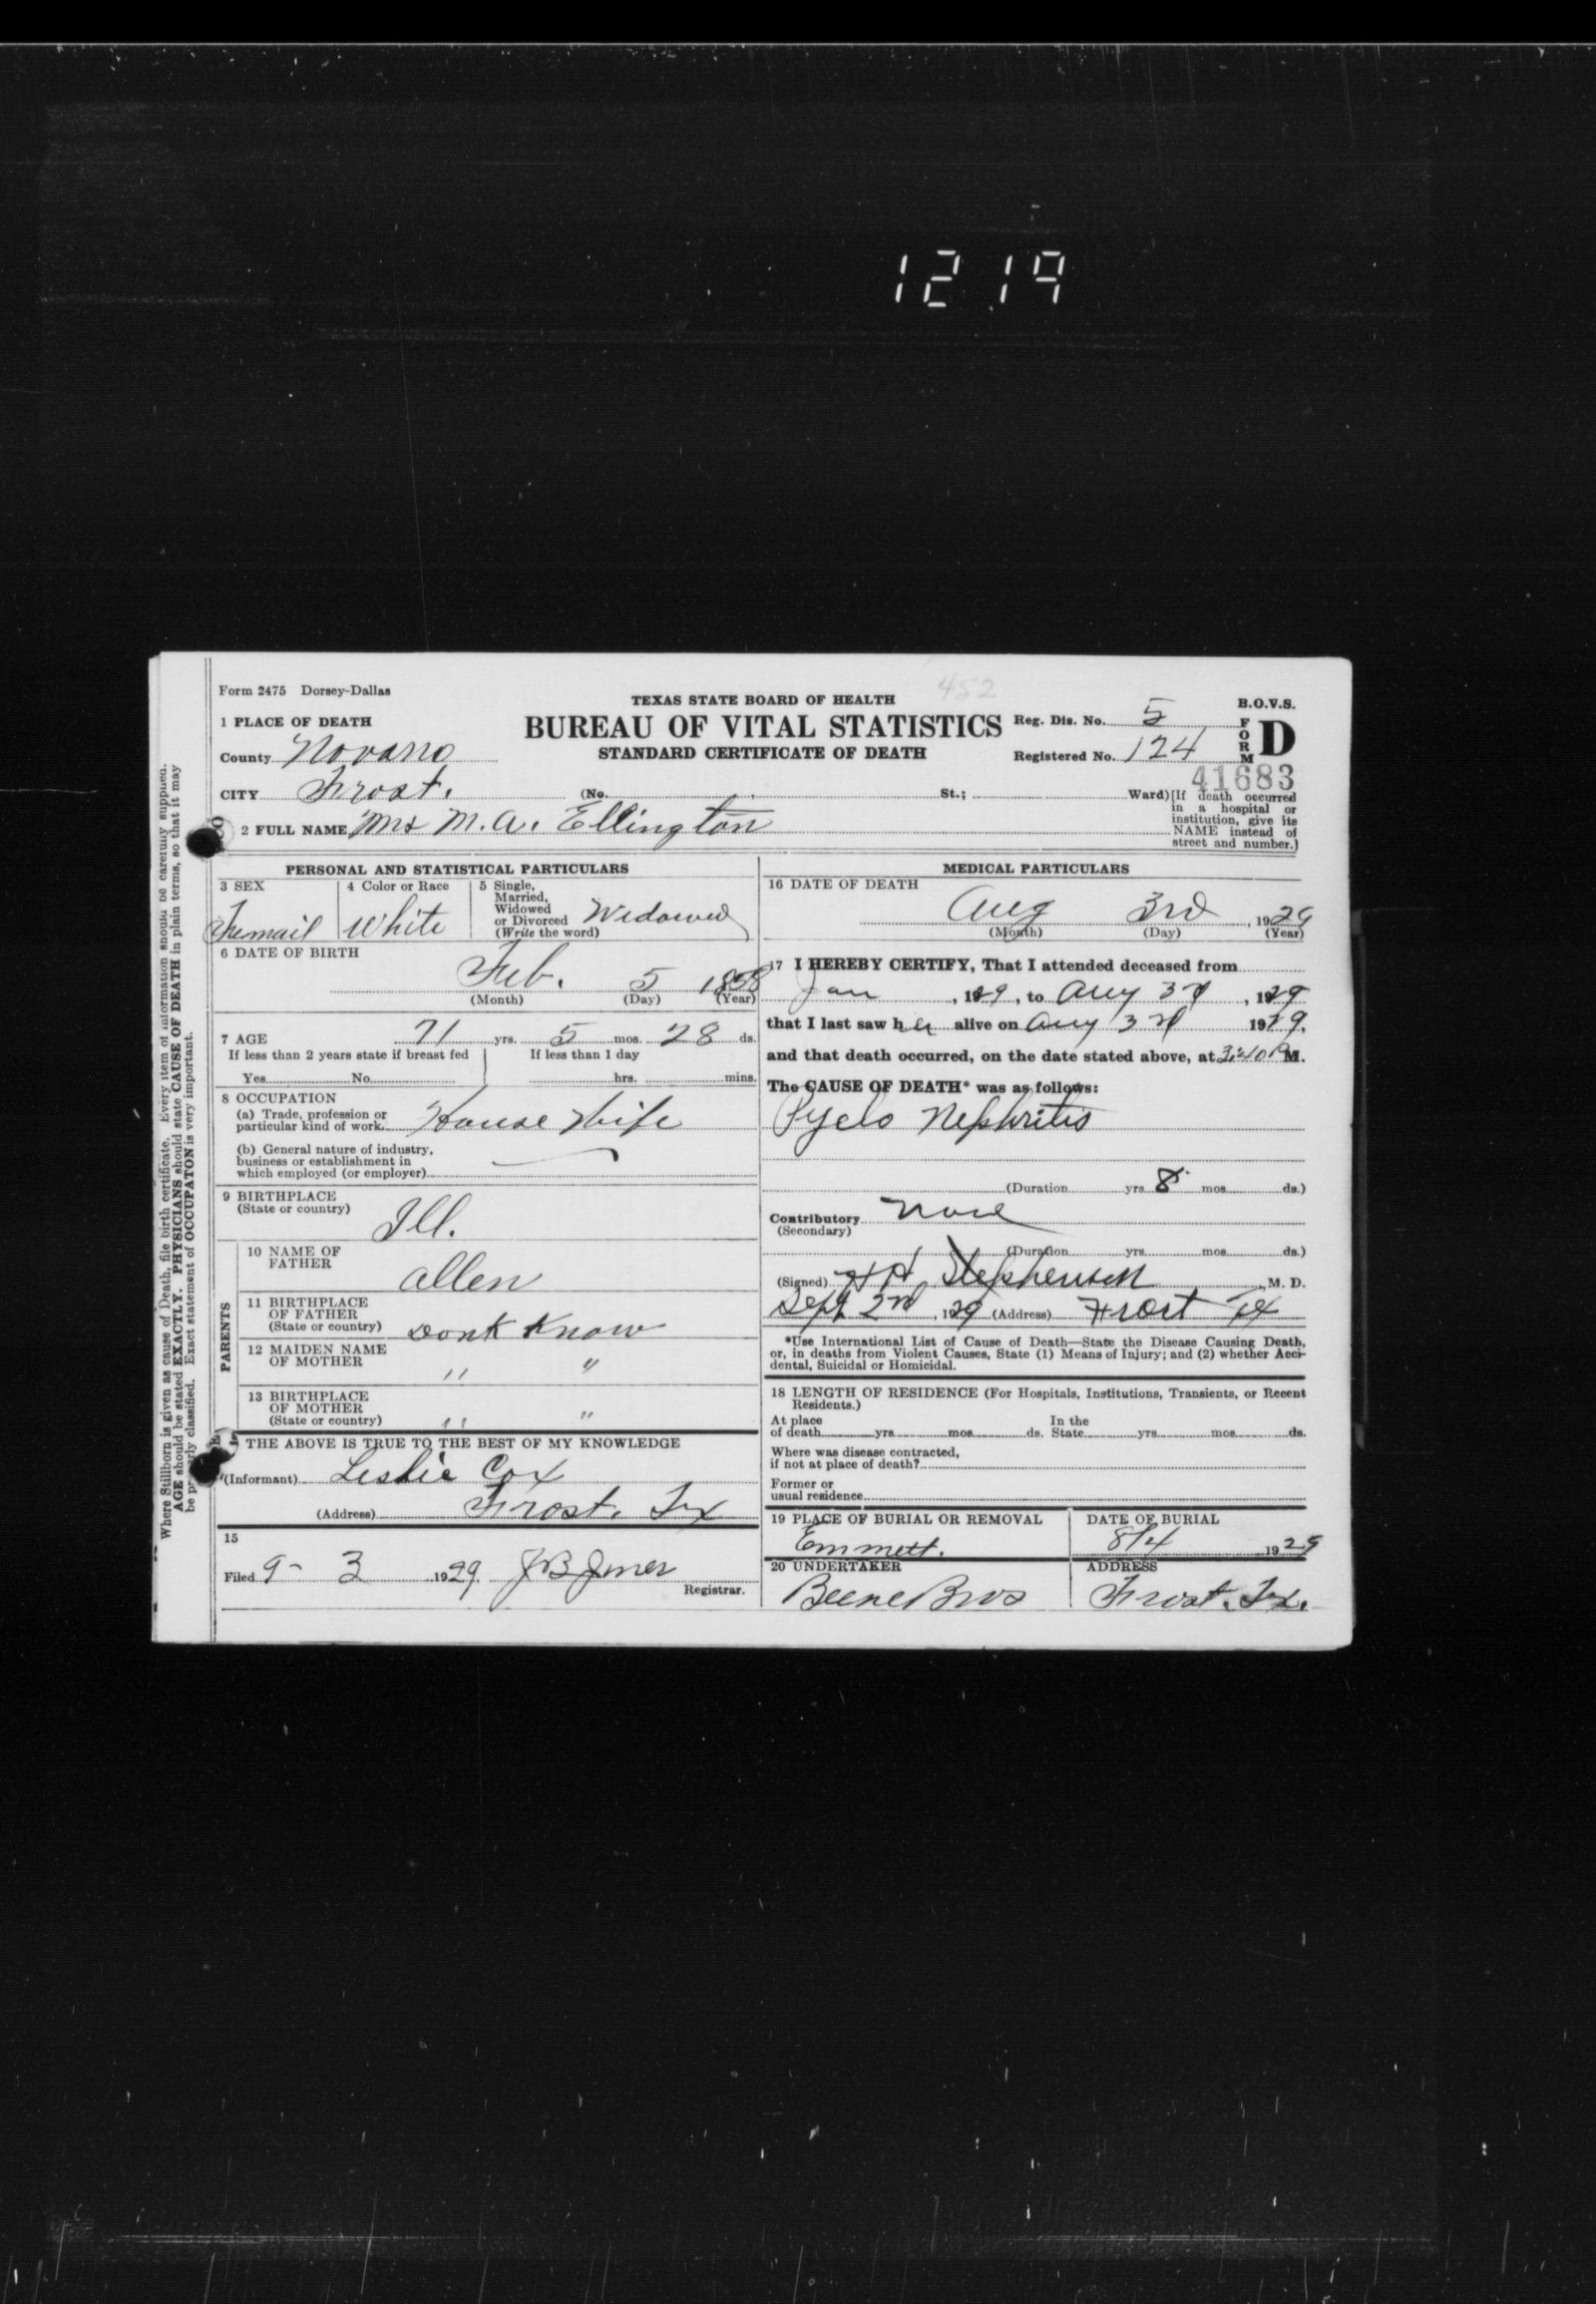 1219
452
Form 2475 Dorsey-Dallas
TEXAS STATE BOARD OF HEALTH
B.O.V.S.
1 PLACE OF DEATH
BUREAU OF VITAL STATISTICS
Reg. Dis. No. 5
FORM D
County Novarro
STANDARD CERTIFICATE OF DEATH
Registered No. 124
41683
CITY Frost. (No. St.; Ward)
[If death occurred
in a hospital or
institution, give its
NAME instead of
street and number.)
2 FULL NAME Mrs M.A. Ellington
PERSONAL AND STATISTICAL PARTICULARS
3 SEX
Femail
4 Color or Race
White
5 Single,
Married,
Widowed
or Divorced
(Write the word)
Widowed
6 DATE OF BIRTH
Feb. 5 1858
(Month) (Day) (Year)
7 AGE 71 yrs. 5 mos. 28 ds.
If less than 2 years state if breast fed
Yes No
If less than 1 day
hrs. mins.
8 OCCUPATION
(a) Trade, profession or
particular kind of work. House Wife
(b) General nature of industry,
business or establishment in
which employed (or employer)
9 BIRTHPLACE
(State or country)
Ill.
PARENTS
10 NAME OF
FATHER
Allen
11 BIRTHPLACE
OF FATHER
(State or country) Dont Know
12 MAIDEN NAME
OF MOTHER
" "
13 BIRTHPLACE
OF MOTHER
(State or country) " "
THE ABOVE IS TRUE TO THE BEST OF MY KNOWLEDGE
(Informant) Leslie Cox
(Address) Frost, Tex
15
Filed 9- 3 1929
Registrar.
MEDICAL PARTICULARS
16 DATE OF DEATH
Aug 3rd, 1929
(Month) (Day) (Year)
17 I HEREBY CERTIFY, That I attended deceased from
Jan, 1929, to Aug 3d, 1929
that I last saw her alive on Aug 3d 1929.
and that death occurred, on the date stated above, at 3:40 P M.
The CAUSE OF DEATH* was as follows:
Pyelo Nephritis
(Duration yrs. 8 mos. ds.)
Contributory None
(Secondary)
(Duration yrs. mos. ds.)
(Signed) Stephenson, M. D.
Sept 2nd, 1929 (Address) Frost Tex
*Use International List of Cause of Death—State the Disease Causing Death,
or, in deaths from Violent Causes, State (1) Means of Injury; and (2) whether Acci-
dental, Suicidal or Homicidal.
18 LENGTH OF RESIDENCE (For Hospitals, Institutions, Transients, or Recent
Residents.)
At place
of death yrs. mos. ds.
In the
State yrs. mos. ds.
Where was disease contracted,
if not at place of death?
Former or
usual residence
19 PLACE OF BURIAL OR REMOVAL
Emmett.
DATE OF BURIAL
8/4 1929
20 UNDERTAKER
Beene Bros
ADDRESS
Frost. Tex.
Where Stillborn is given as cause of Death, file birth certificate. Every item of information should be carefully supplied.
AGE should be stated EXACTLY. PHYSICIANS should state CAUSE OF DEATH in plain terms, so that it may
be properly classified. Exact statement of OCCUPATON is very important.